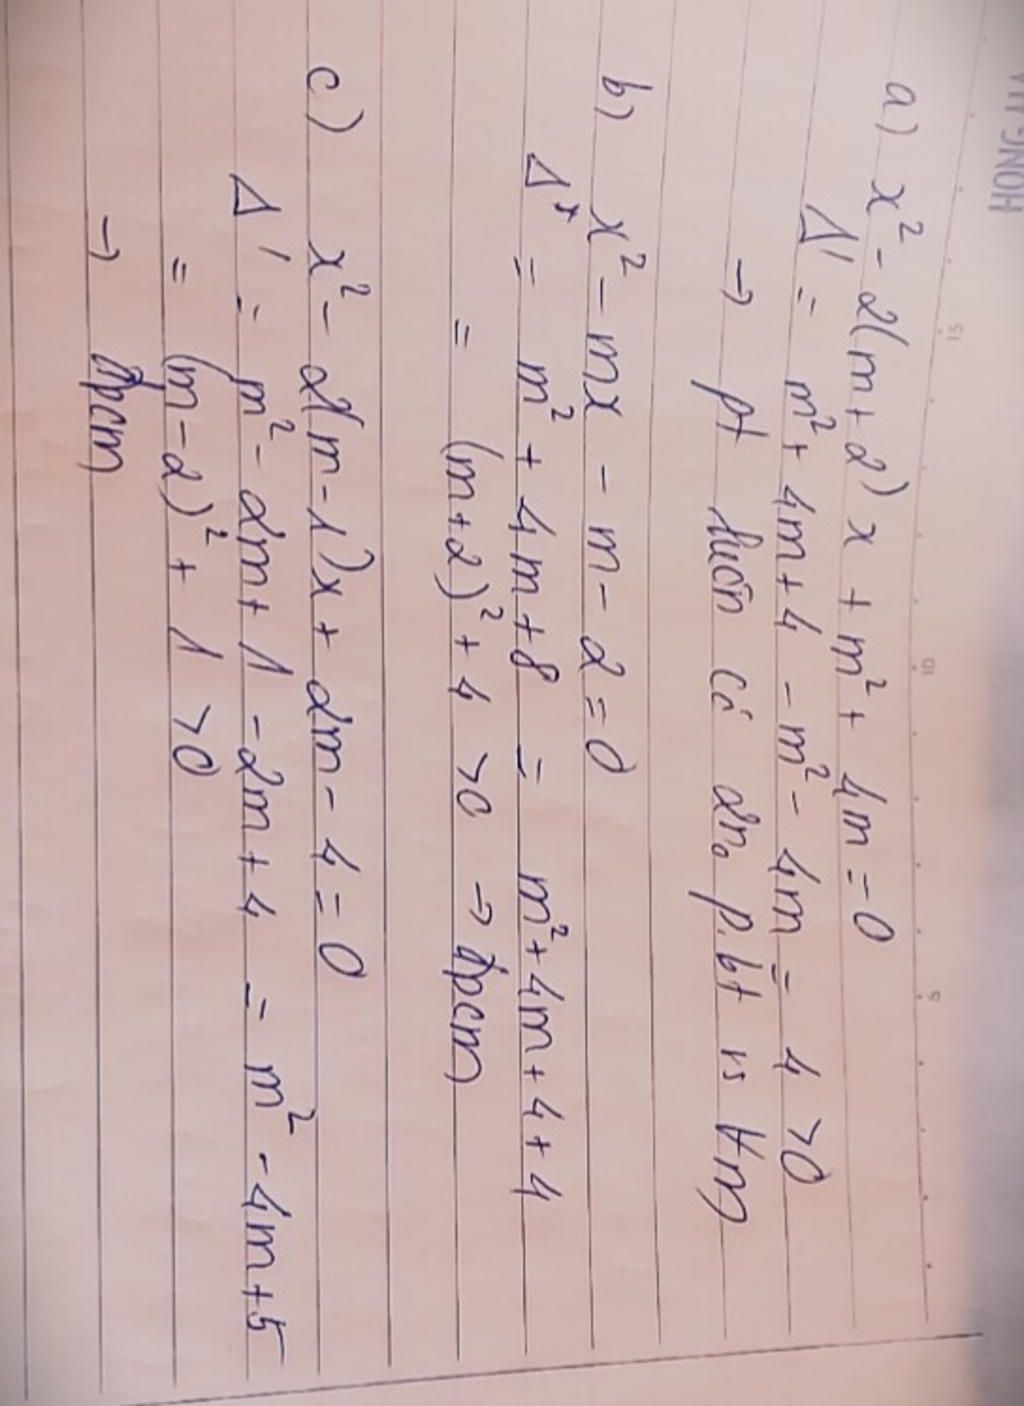 HONG HA
15 10 5
a) x² - 2(m+2)x + m² + 4m = 0
Δ' = m² + 4m + 4 - m² - 4m = 4 >0
→ pt luôn có 2n₀ p.bt vs ∀m
b) x² - mx - m - 2 = 0
Δ = m² + 4m + 8 = m² + 4m + 4 + 4
= (m+2)² + 4 >0 → đpcm
c) x² - 2(m-1)x + 2m - 4 = 0
Δ' = m² - 2m + 1 - 2m + 4 = m² - 4m + 5
= (m-2)² + 1 >0
→ đpcm